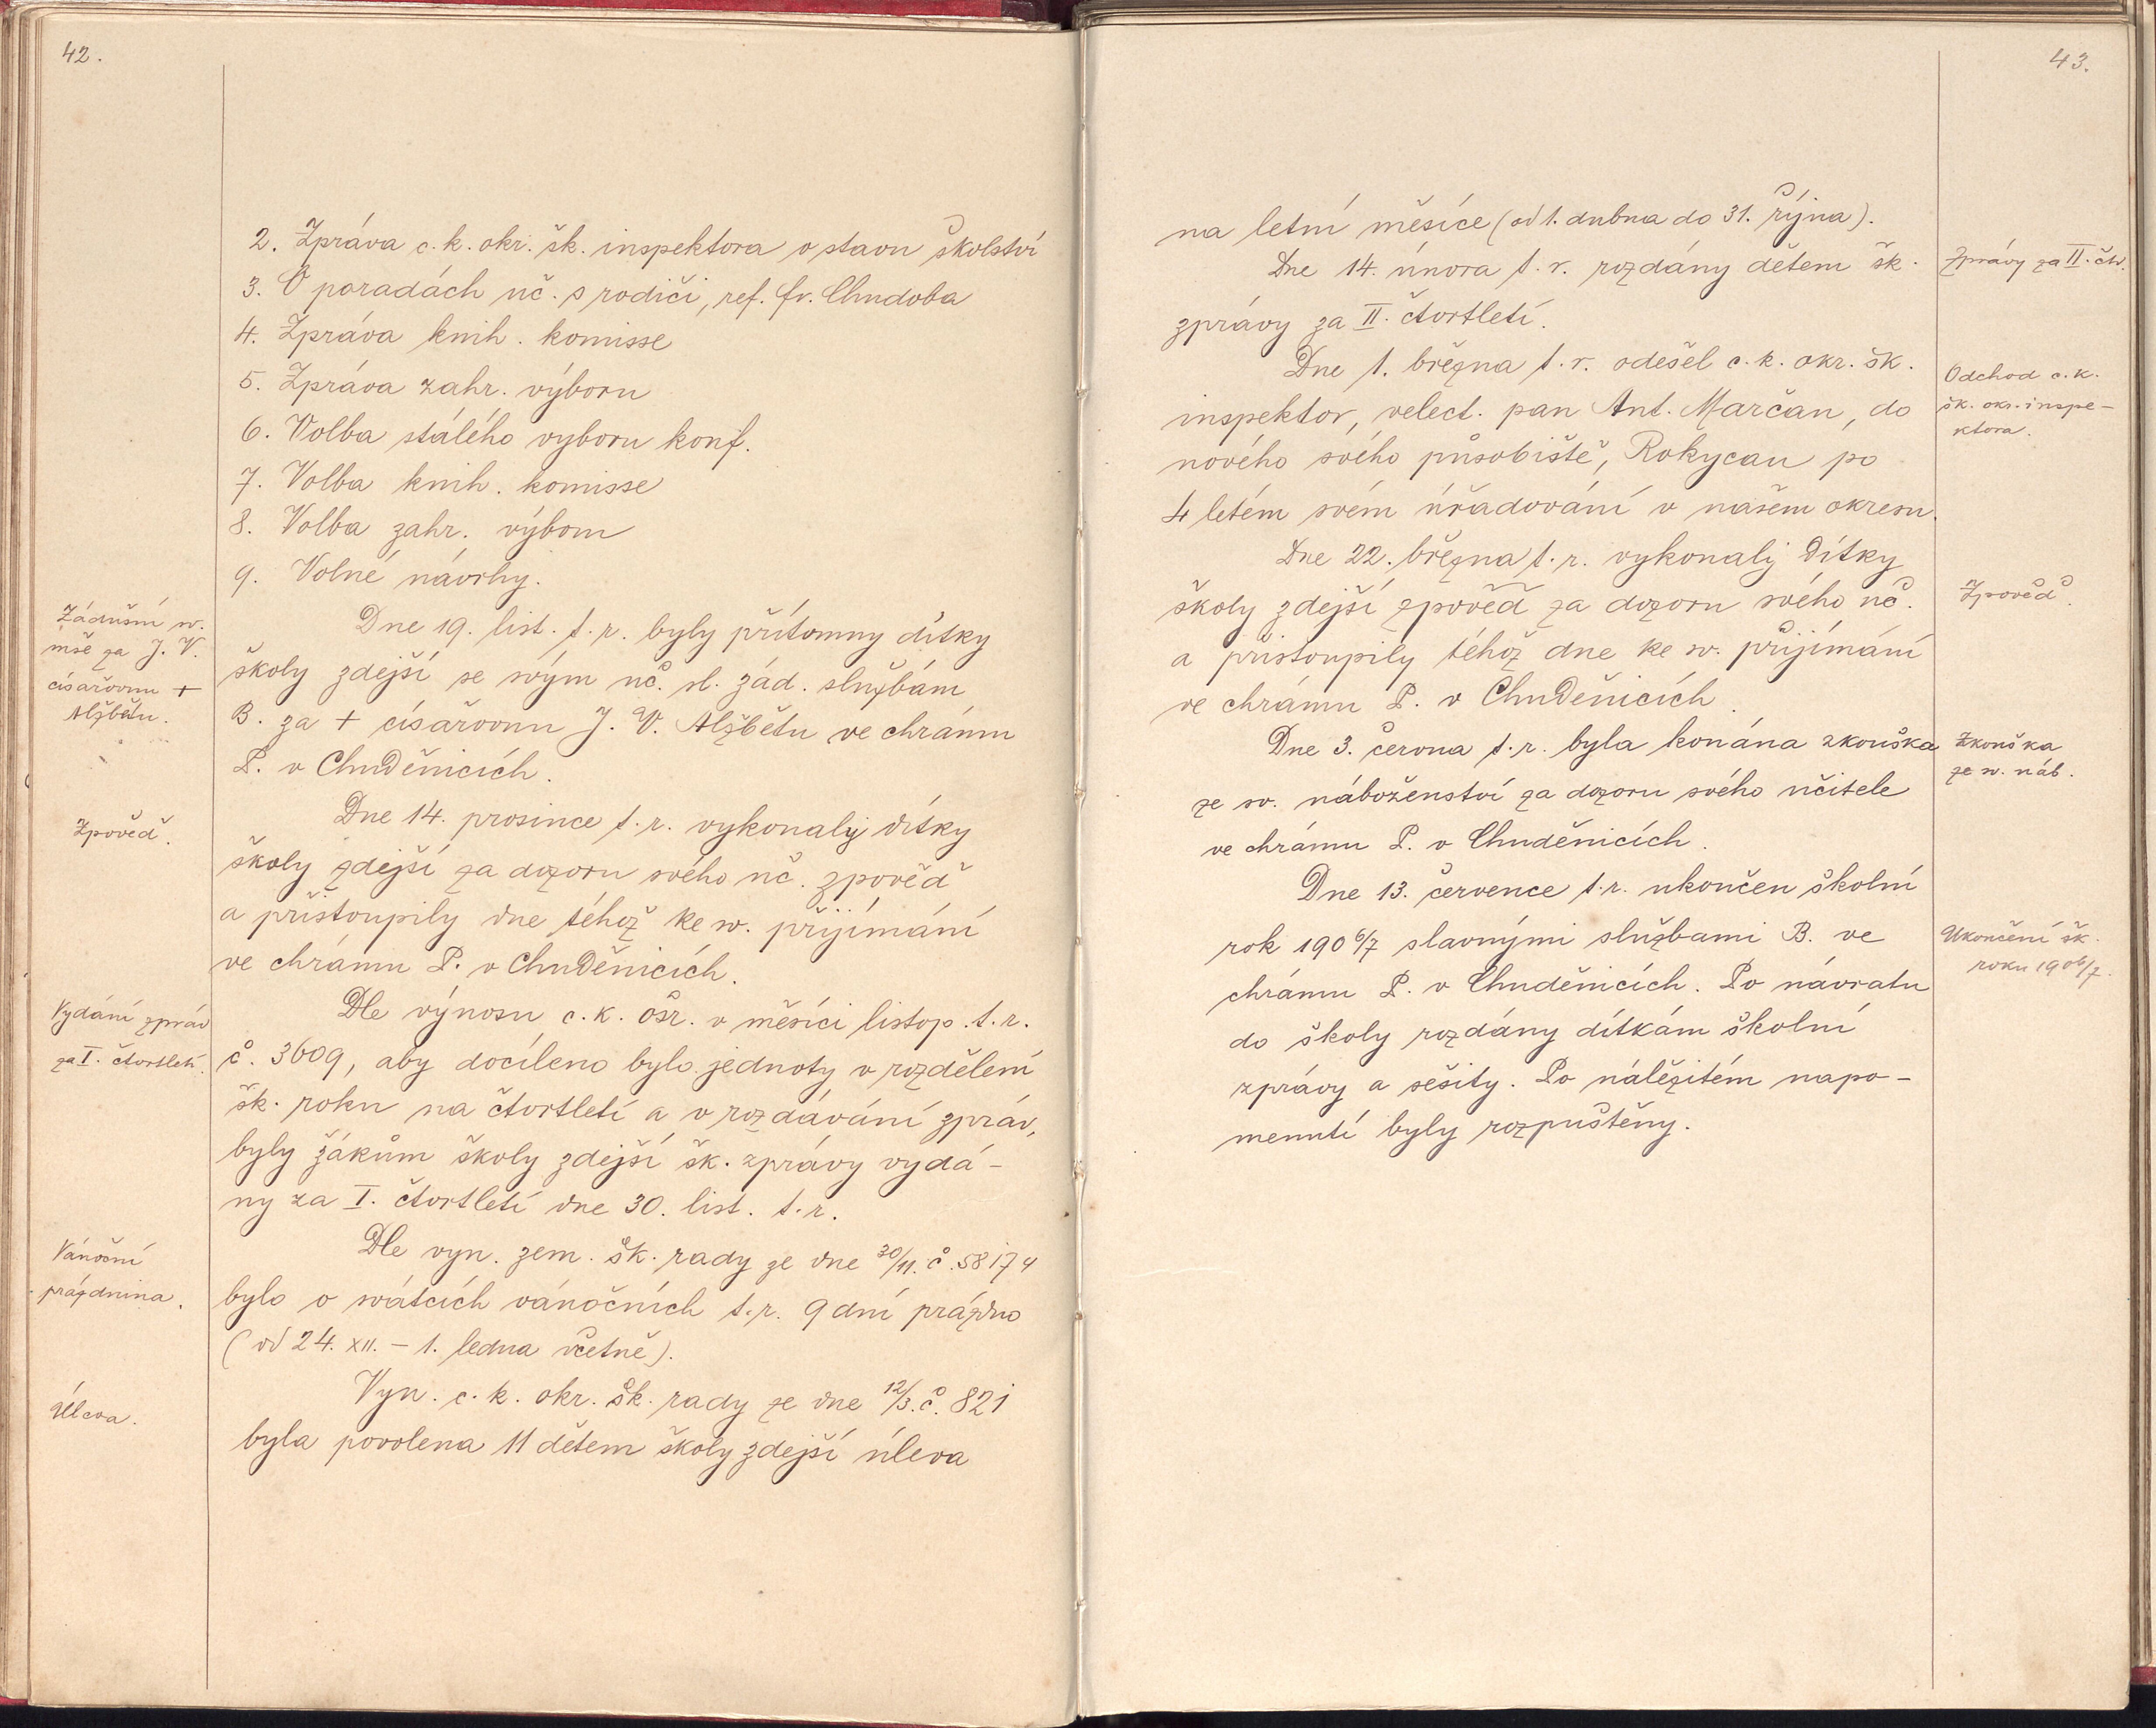 42.
2. Zpráva c. k. okr. šk. inspektora o stavu školství
3. O poradách uč. s rodiči, ref. fr. Chudoba
4. Zpráva knih. komisse
5. Zpráva zahr. výboru
6. Volba stálého vyboru konf.
7. Volba knih. komisse
8. Volba zahr. výboru
9. Volné návrhy.
Zádušní sv.
mše za J. V.
císařovnu +
Alžbětu.
Dne 19. list. t. r. byly přítomny dítky
školy zdejší se svým uč. sl. zád. službám
B. za + císařovnu J. V. Alžbětu ve chrámu
P. v Chuděnicích.
Zpověď.
Dne 14. prosince t. r. vykonaly dítky
školy zdejší za dozoru svého uč. zpověď
a přistoupily dne téhož ke sv. přijímání
ve chrámu P. v Chuděnicích.
Vydání zpráv
za I. čtvrtletí.
Dle výnosu c. k. ošr. v měsíci listop. t. r.
č. 3609, aby docíleno bylo jednoty v rozdělení
šk. roku na čtvrtletí a v rozdávání zpráv,
byly žákům školy zdejší šk. zprávy vydá-
ny za I. čtvrtletí dne 30. list. t. r.
Vánoční
prázdnina.
Dle vyn. zem. šk. rady ze dne 30/11. č. 58174
bylo o svátcích vánočních t. r. 9 dní prázdno
(od 24. XII. - 1. ledna včetně).
Úleva.
Vyn. c. k. okr. šk. rady ze dne 12/3. č. 821
byla povolena 11 dětem školy zdejší úleva
43.
na letní měsíce (od 1. dubna do 31. října).
Dne 14. února t. r. rozdány dětem šk.
zprávy za II. čtvrtletí.
Zprávy za II. čtv.
Dne 1. března t. r. odešel c. k. okr. šk.
inspektor, velect. pan Ant. Marčan, do
nového svého působiště, Rokycan po
4 letém svém úřadování v našem okresu.
Odchod c. k.
šk. okr. inspe-
ktora.
Dne 22. března t. r. vykonaly dítky
školy zdejší zpověď za dozoru svého uč.
a přistoupily téhož dne ke sv. přijímání
ve chrámu P. v Chuděnicích.
Zpověď.
Dne 3. června t. r. byla konána zkouška
ze sv. náboženství za dozoru svého učitele
ve chrámu P. v Chuděnicích.
Zkouška
ze sv. náb.
Dne 13. července t. r. ukončen školní
rok 1906/7 slavnými službami B. ve
chrámu P. v Chuděnicích. Po návratu
do školy rozdány dítkám školní
zprávy a sešity. Po náležitém napo-
menutí byly rozpuštěny.
Ukončení šk.
roku 1906/7.